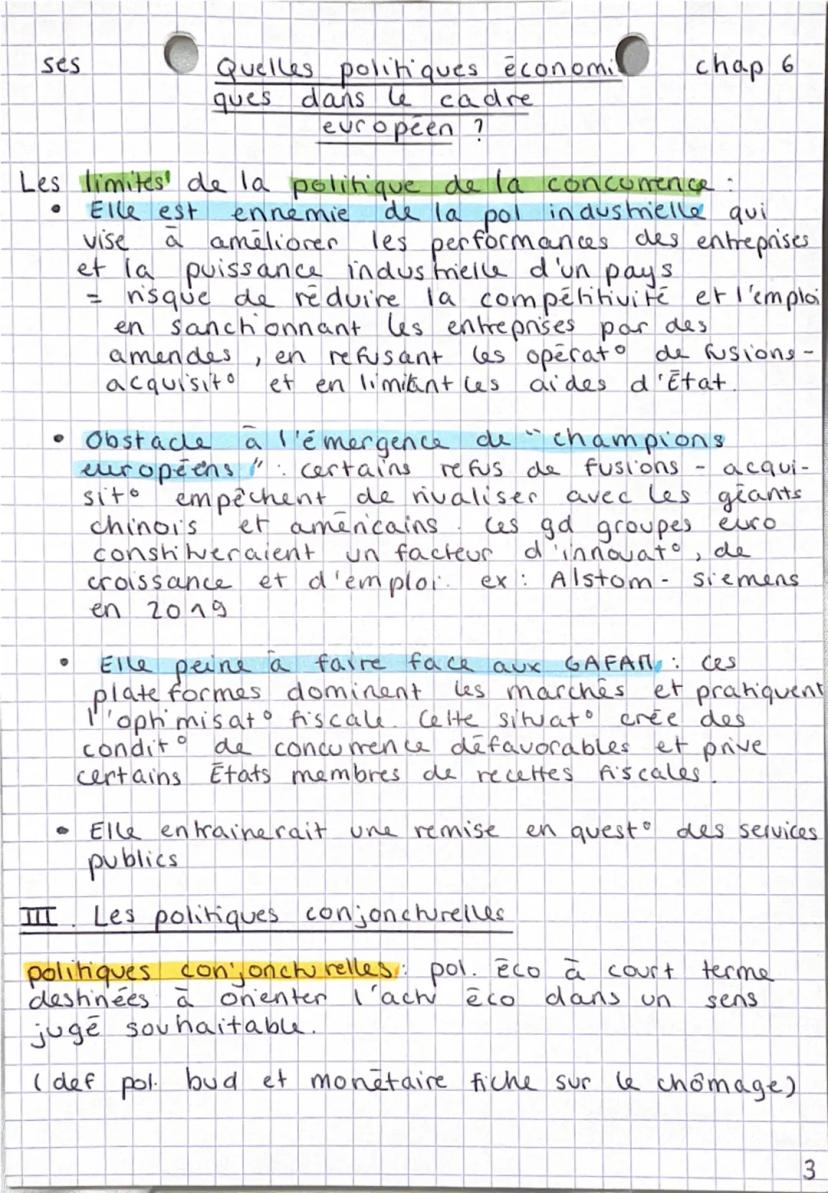 ses
Quelles politiques économi
chap 6
ques dans le cadre
européen ?
Les limites de la politique de la concurrence :
• Elle est ennemie de la pol industrielle qui
vise à améliorer les performances des entreprises
et la puissance industrielle d'un pays
= risque de réduire la compétitivité et l'emploi
en sanctionnant les entreprises par des
amendes, en refusant les opérat° de fusions-
acquisit° et en limitant les aides d'État.
• Obstacle à l'émergence de "champions
européens" : certains refus de fusions - acqui-
sit° empêchent de rivaliser avec les géants
chinois et américains. Ces gd groupes euro
constitueraient un facteur d'innovat°, de
croissance et d'emploi. ex : Alstom - Siemens
en 2019
• Elle peine à faire face aux GAFAM : ces
plateformes dominent les marchés et pratiquent
l'optimisat° fiscale. Cette situat° crée des
condit° de concurrence défavorables et prive
certains États membres de recettes fiscales.
• Elle entrainerait une remise en quest° des services
publics
III. Les politiques conjoncturelles
politiques conjoncturelles : pol. éco à court terme
destinées à orienter l'actv éco dans un sens
jugé souhaitable.
(def pol. bud et monétaire fiche sur le chômage)
3